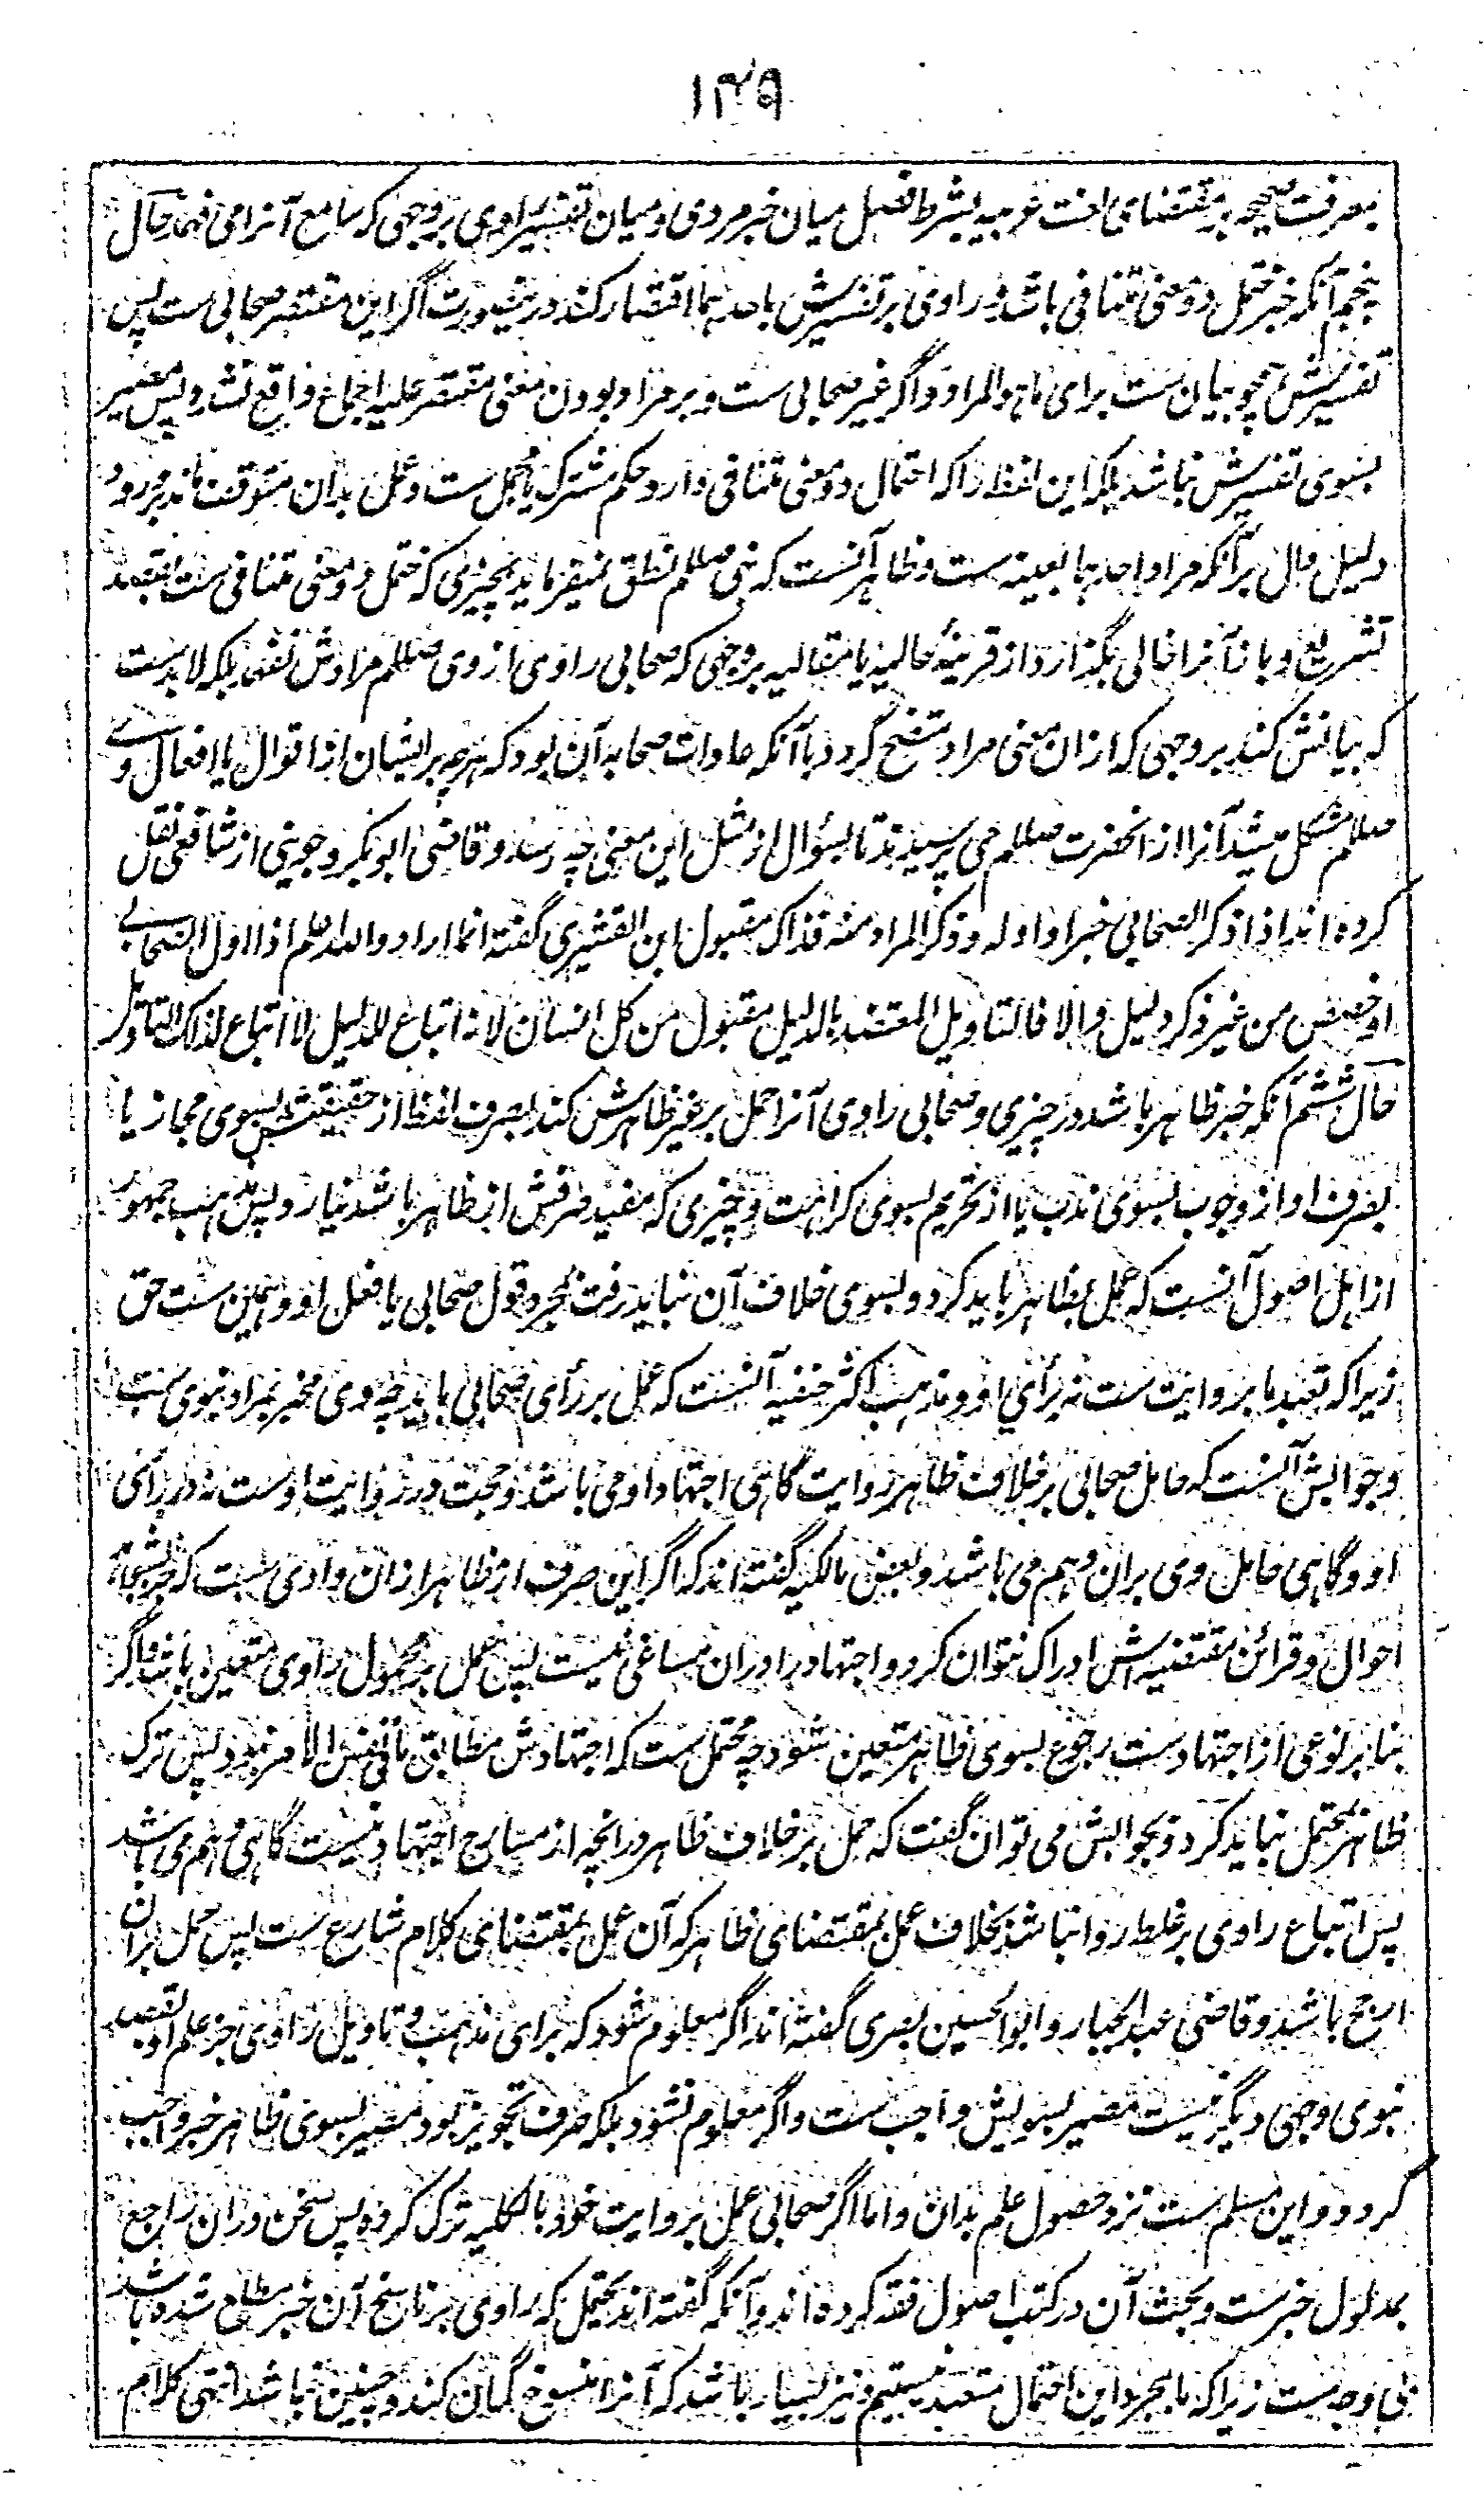 ۱۲۹
بمعرفت صحیحه بمقتضای لغت عربیه بشرط فصل میان خبر مروی و میان تفسیر راوی بر وجهی که سامع آنرا می فهمد حال
پنجم آنکه خبر محتمل دو معنی متنافی باشد و راوی بر تفسیرش باحدهما اقتصار کند درینصورت اگر این مقتصر صحابی ست پس
تفسیرش همچو بیان ست برای ما هو المراد و اگر غیر صحابی ست و بر مراد بودن معنی مقتصر علیه اجماع واقع نشده پس مصیر
بسوی تفسیرش نباشد بلکه این لفظ را که احتمال دو معنی متنافی دارد حکم مشترک یا مجمل ست و عمل بدان متوقف ماند بر ورود
دلیل دال بر آنکه مراد احدهما بعینه ست و ظاهر آنست که نبی صللم نطق نمیفرماید بچیزی که محتمل دو معنی متنافی ست بقصد
تشریع و باز آنرا خالی بگذارد از قرینهٔ حالیه یا مقالیه بر وجهی که صحابی راوی از وی صللم مرادش نفهمد بلکه لابدست
که بیانش کند بر وجهی که ازان معنی مراد متضح گردد با آنکه عادات صحابه آن بود که هرچه بر ایشان از اقوال یا افعال وے
صللم مشکل میشد آنرا از آنحضرت صللم می پرسیدند تا بسؤال از مثل این معنی چه رسد و قاضی ابوبکر و جوینی از شافعی نقل
کرده اند اذا ذکر الصحابی خبرا و اوله و ذکر المراد منه فذاک مقبول ابن القشیری گفته انما اراد والله اعلم اذا اول الصحابے
او خصص من غیر ذکر دلیل و الا فالتاویل المعتضد بالدلیل مقبول من کل انسان لانه اتباع للدلیل لا اتباع لذلک التاویل
حال ششم آنکه خبر ظاهر باشد در چیزی و صحابی راوی آنرا حمل بر غیر ظاهرش کند بصرف لفظ از حقیقتش بسوی مجاز یا
بصرف او از وجوب بسوی ندب یا از تحریم بسوی کراهت و چیزی که مفید صرفش از ظاهر باشد نیارد پس مذهب جمهور
از اهل اصول آنست که عمل بظاهر باید کرد و بسوی خلاف آن نباید رفت بمجرد قول صحابی یا فعل او و همین ست حق
زیرا که تعبد ما بروایت ست نه برأی او و مذهب اکثر حنفیه آنست که عمل بر رأی صحابی باید چه وی مخبر بمراد نبوی ست
و جوابش آنست که حامل صحابی بر خلاف ظاهر روایت گاهی اجتهاد او می باشد و حجت در روایت اوست نه در رأی
او و گاهی حامل وی بران وهم می باشد و بعض مالکیه گفته اند که اگر این صرف از ظاهر ازان وادی ست که جز بمشاهدهٔ
احوال و قرائن مقتضیه اش ادراک نتوان کرد و اجتهاد را دران مساغی نیست پس عمل بر محمول راوی متعین باشد و اگر
بنا بر نوعی از اجتهاد ست رجوع بسوی ظاهر متعین شود چه محتمل ست که اجتهادش مطابق ما فی نفس الامر نبود پس ترک
ظاهر بمحتمل نباید کرد و بجوابش می توان گفت که حمل بر خلاف ظاهر در آنچه از مسارح اجتهاد نیست گاهی وهم می باشد
پس اتباع راوی بر غلط روا نباشد بخلاف عمل بمقتضای ظاهر که آن عمل بمقتضای کلام شارع ست پس حمل بران
ارجح باشد و قاضی عبدالجبار و ابوالحسین بصری گفته اند اگر معلوم شود که برای مذهب و تاویل راوی جز علم او بقصد
نبوی وجهی دیگر نیست مصیر بسویش واجب ست و اگر معلوم نشود بلکه صرف تجویز بود مصیر بسوی ظاهر خبر واجب
گردد و این مسلم ست نزد حصول علم بدان و اما اگر صحابی عمل بروایت خود بالکلیه ترک کرده پس سخن دران راجع
بمدلول خبر ست و بحث آن در کتب اصول فقه کرده اند و آنکه گفته اند یحتمل که راوی بر ناسخ آن خبر مطلع شده باشد
بی وجه ست زیرا که ما بمجرد این احتمال متعبد نیستیم و نیز بسیار باشد که آنرا منسوخ گمان کند و چنین نباشد انتهی کلام